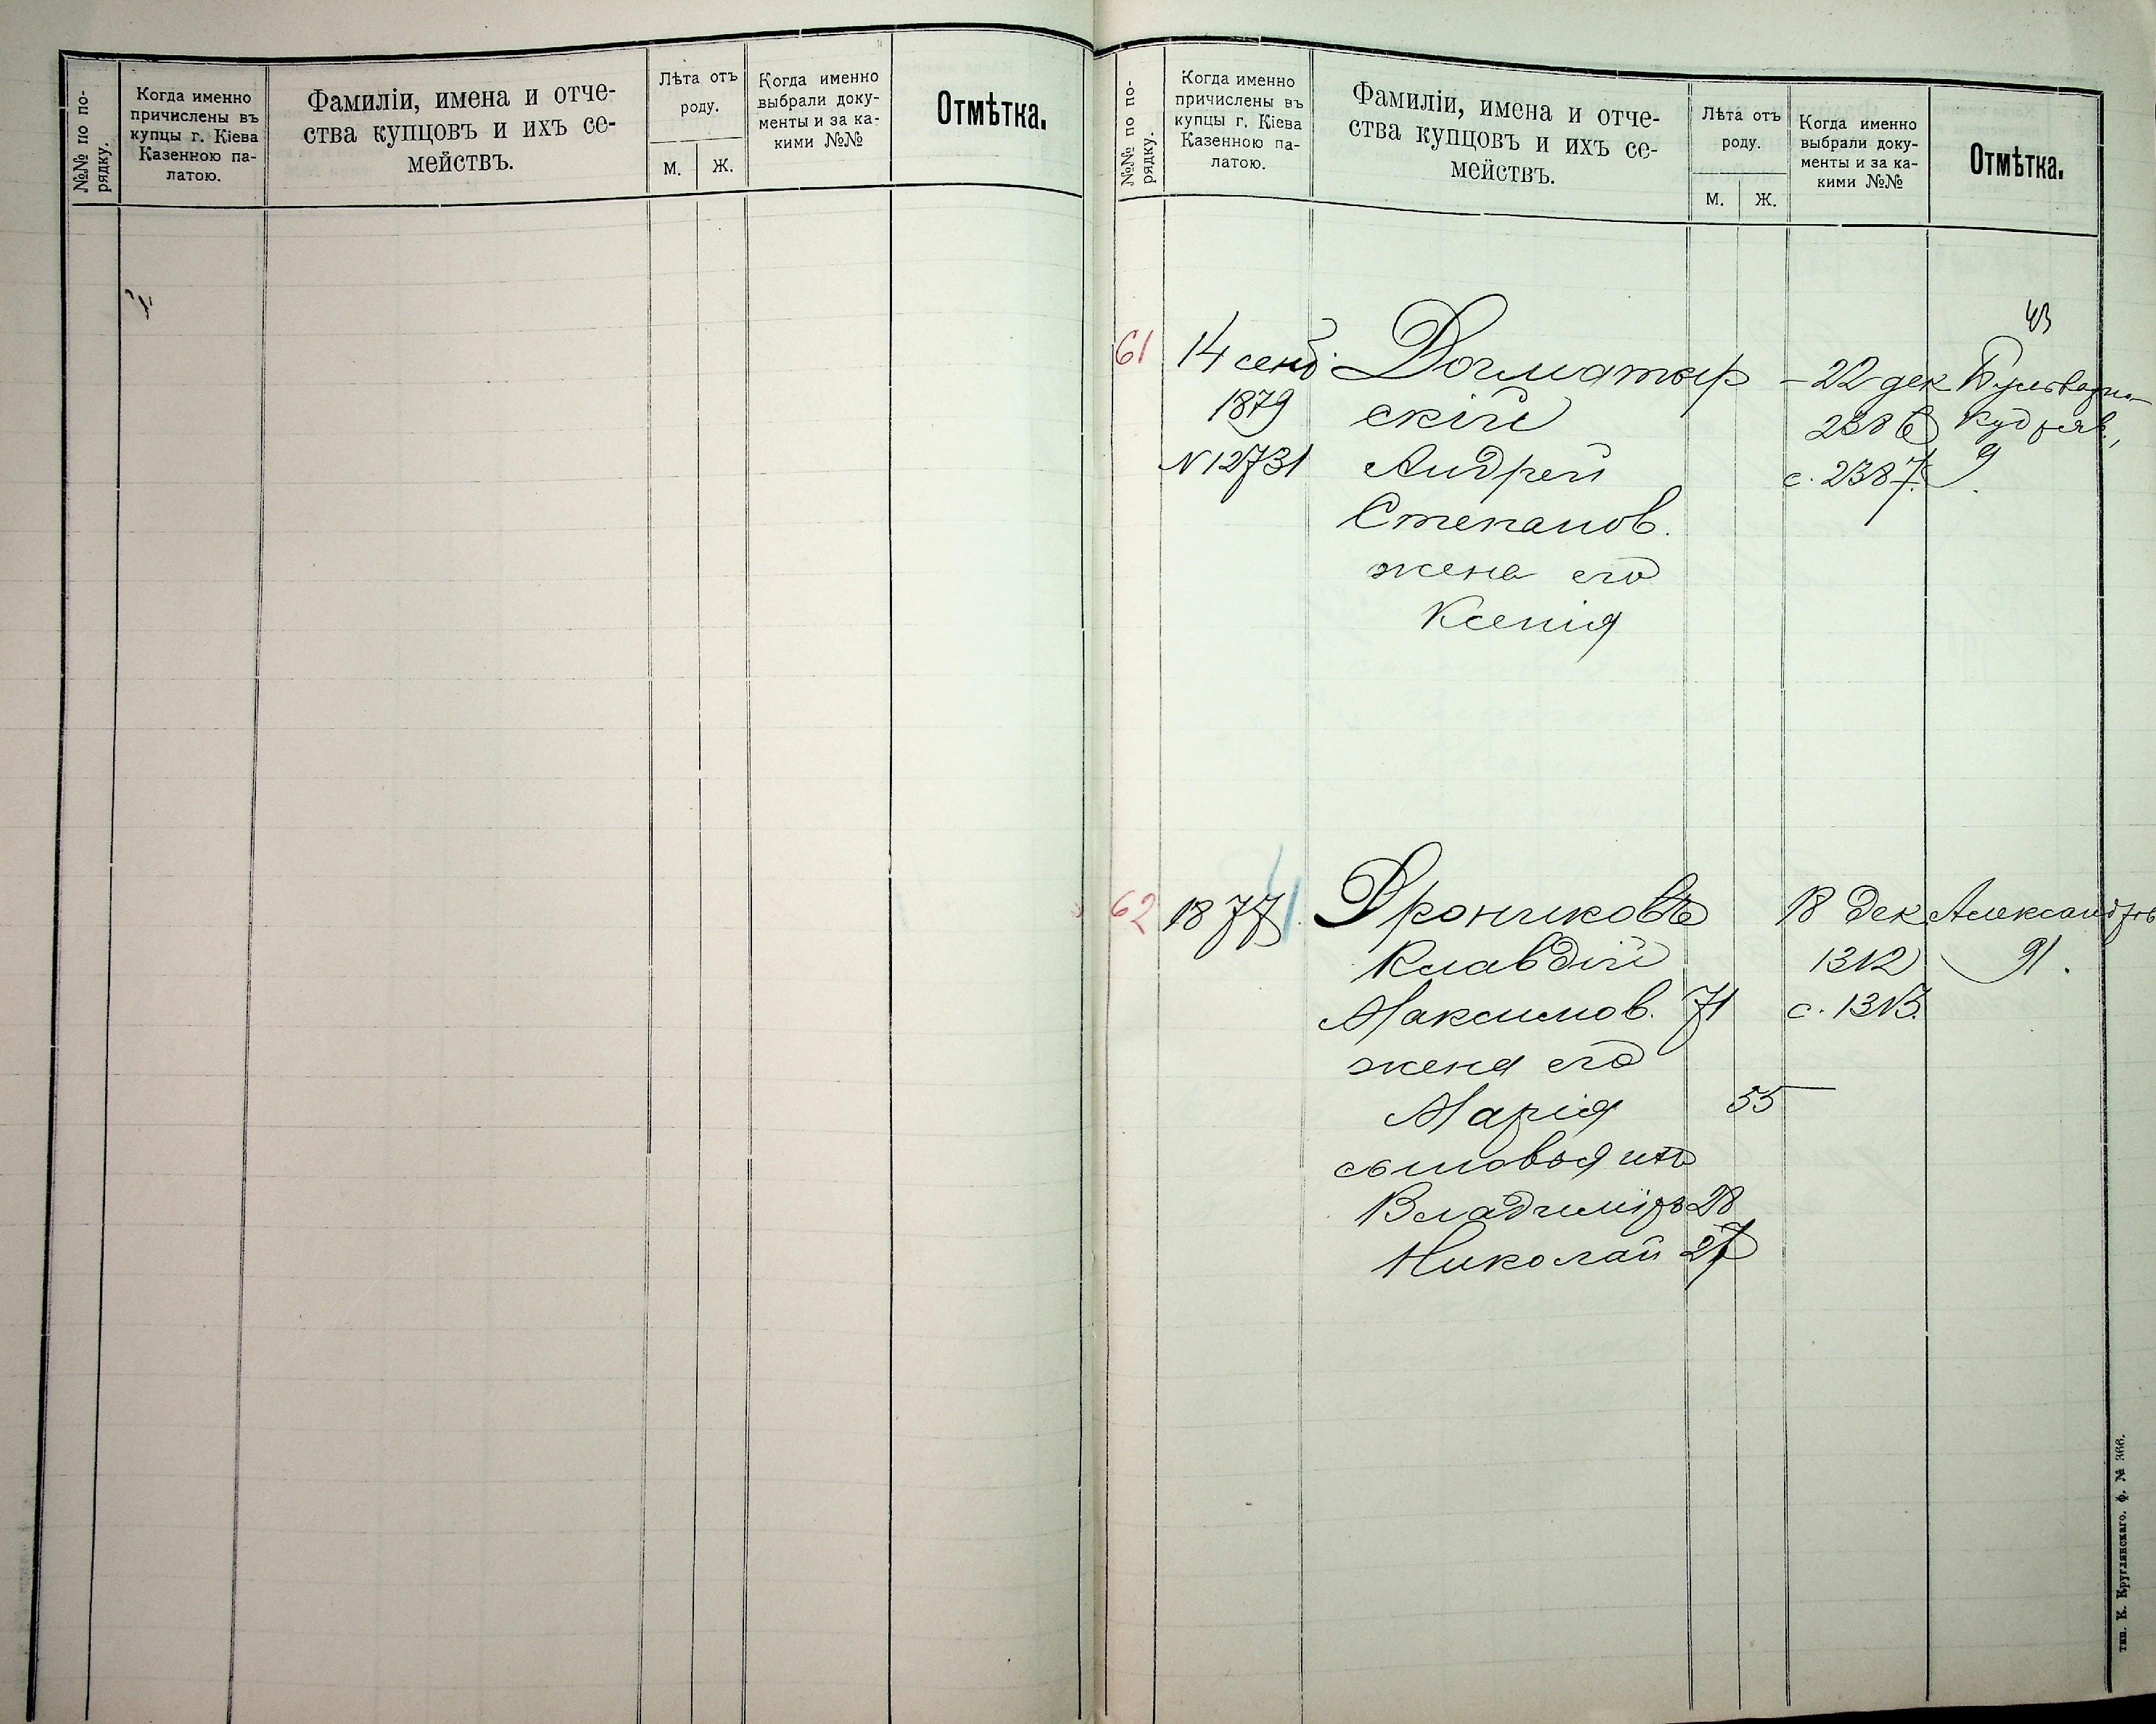 №№ по по-
рядку.
Когда именно
причислены въ
купцы г. Кіева
Казенною па-
латою.
Фамиліи, имена и отче-
ства купцовъ и ихъ се-
мействъ.
Лѣта отъ
роду.
М.
Ж.
Когда именно
выбрали доку-
менты и за ка-
кими №№
Отмѣтка.
№№ по по-
рядку.
Когда именно
причислены въ
купцы г. Кіева
Казенною па-
латою.
Фамиліи, имена и отче-
ства купцовъ и ихъ се-
мействъ.
Лѣта отъ
роду.
М.
Ж.
Когда именно
выбрали доку-
менты и за ка-
кими №№
Отмѣтка.
43
61
14 сент.
1879
N 12731
Догматыр
скій
Андрей
Степанов.
жена его
Ксенія
22 дек
2386
с. 2387.
Бульварно-
Кудряв.,
9
62
1877
Дрониковъ
Клавдій
Максимов. 71
жена его
Марія 55
сыновья ихъ
Владиміръ 28
Николай 27
18 дек
1312
с. 1313.
Александров
91.
тип. К. Круглянскаго. ф. № 366.